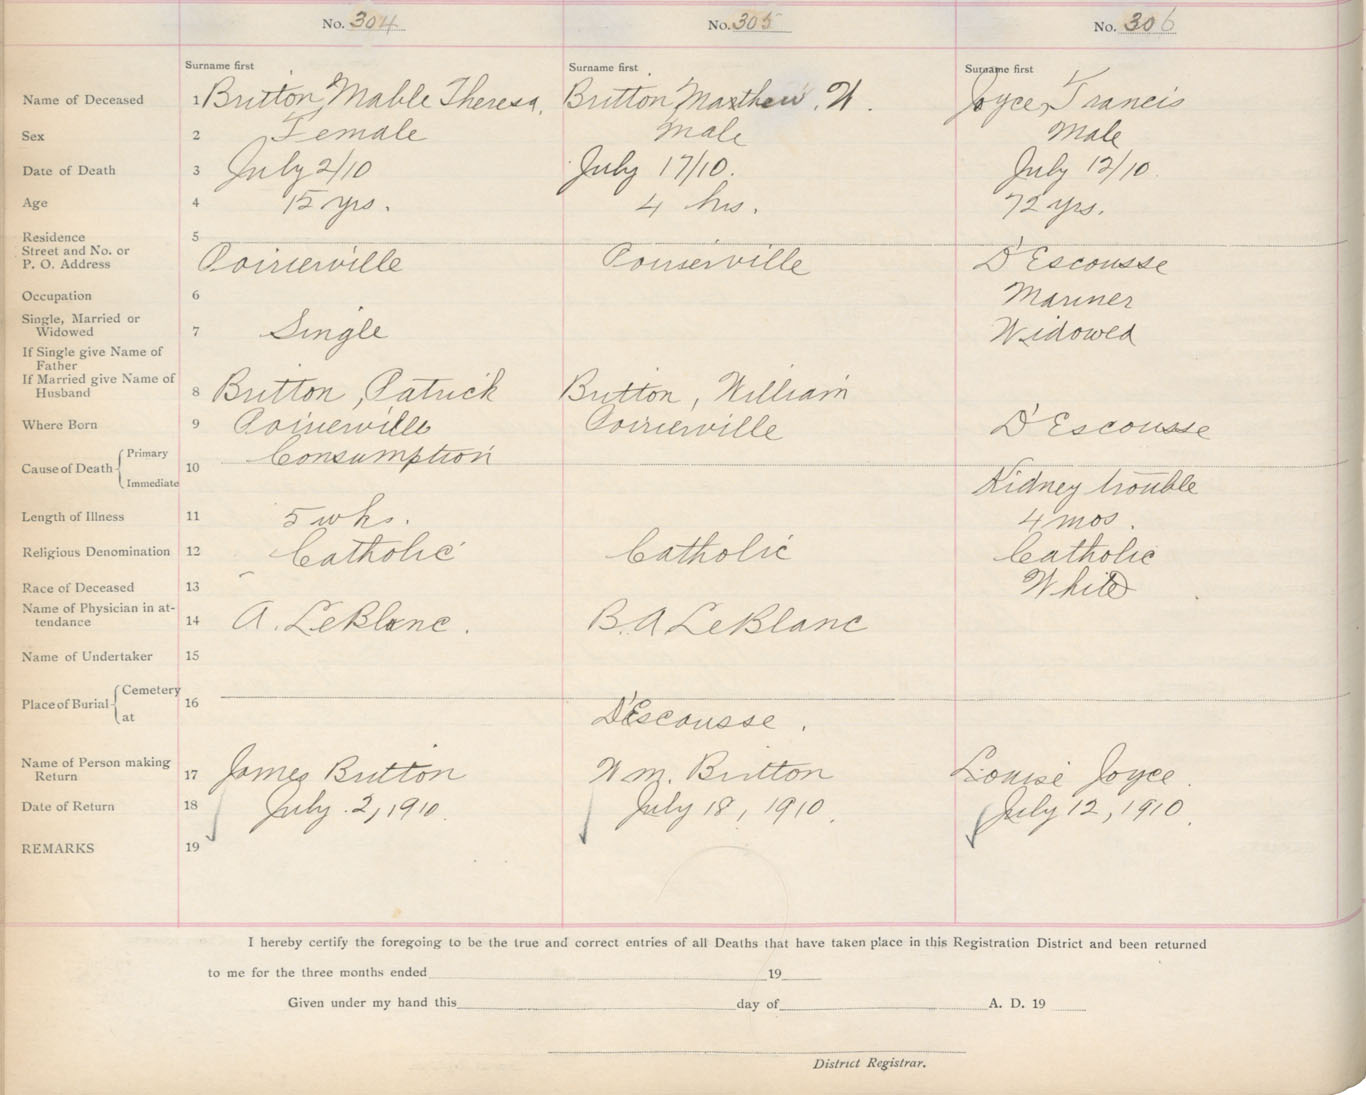 No. 304 No. 305 No. 306
Surname first Surname first Surname first
Name of Deceased 1 Britton, Mable Theresa. Britton, Matthew. W. Joyce, Francis
Sex 2 Female Male Male
Date of Death 3 July 2/10 July 17/10. July 12/10.
Age 4 15 yrs. 4 hrs. 72 yrs.
Residence 5
Street and No. or
P. O. Address Poirierville Poirierville D'Escousse
Occupation 6 Mariner
Single, Married or
Widowed 7 Single Widowed
If Single give Name of
Father
If Married give Name of
Husband 8 Britton, Patrick Britton, William
Where Born 9 Poirierville Poirierville D'Escousse
Cause of Death Primary Consumption
10
Immediate Kidney trouble
Length of Illness 11 5 wks. 4 mos.
Religious Denomination 12 Catholic Catholic Catholic
Race of Deceased 13 White
Name of Physician in at-
tendance 14 A. LeBlanc. B. A LeBlanc
Name of Undertaker 15
Place of Burial Cemetery 16
at D'Escousse.
Name of Person making
Return 17 James Britton Wm. Britton Louise Joyce.
Date of Return 18 July 2, 1910. July 18, 1910. July 12, 1910.
REMARKS 19
I hereby certify the foregoing to be the true and correct entries of all Deaths that have taken place in this Registration District and been returned
to me for the three months ended 19
Given under my hand this day of A. D. 19
District Registrar.